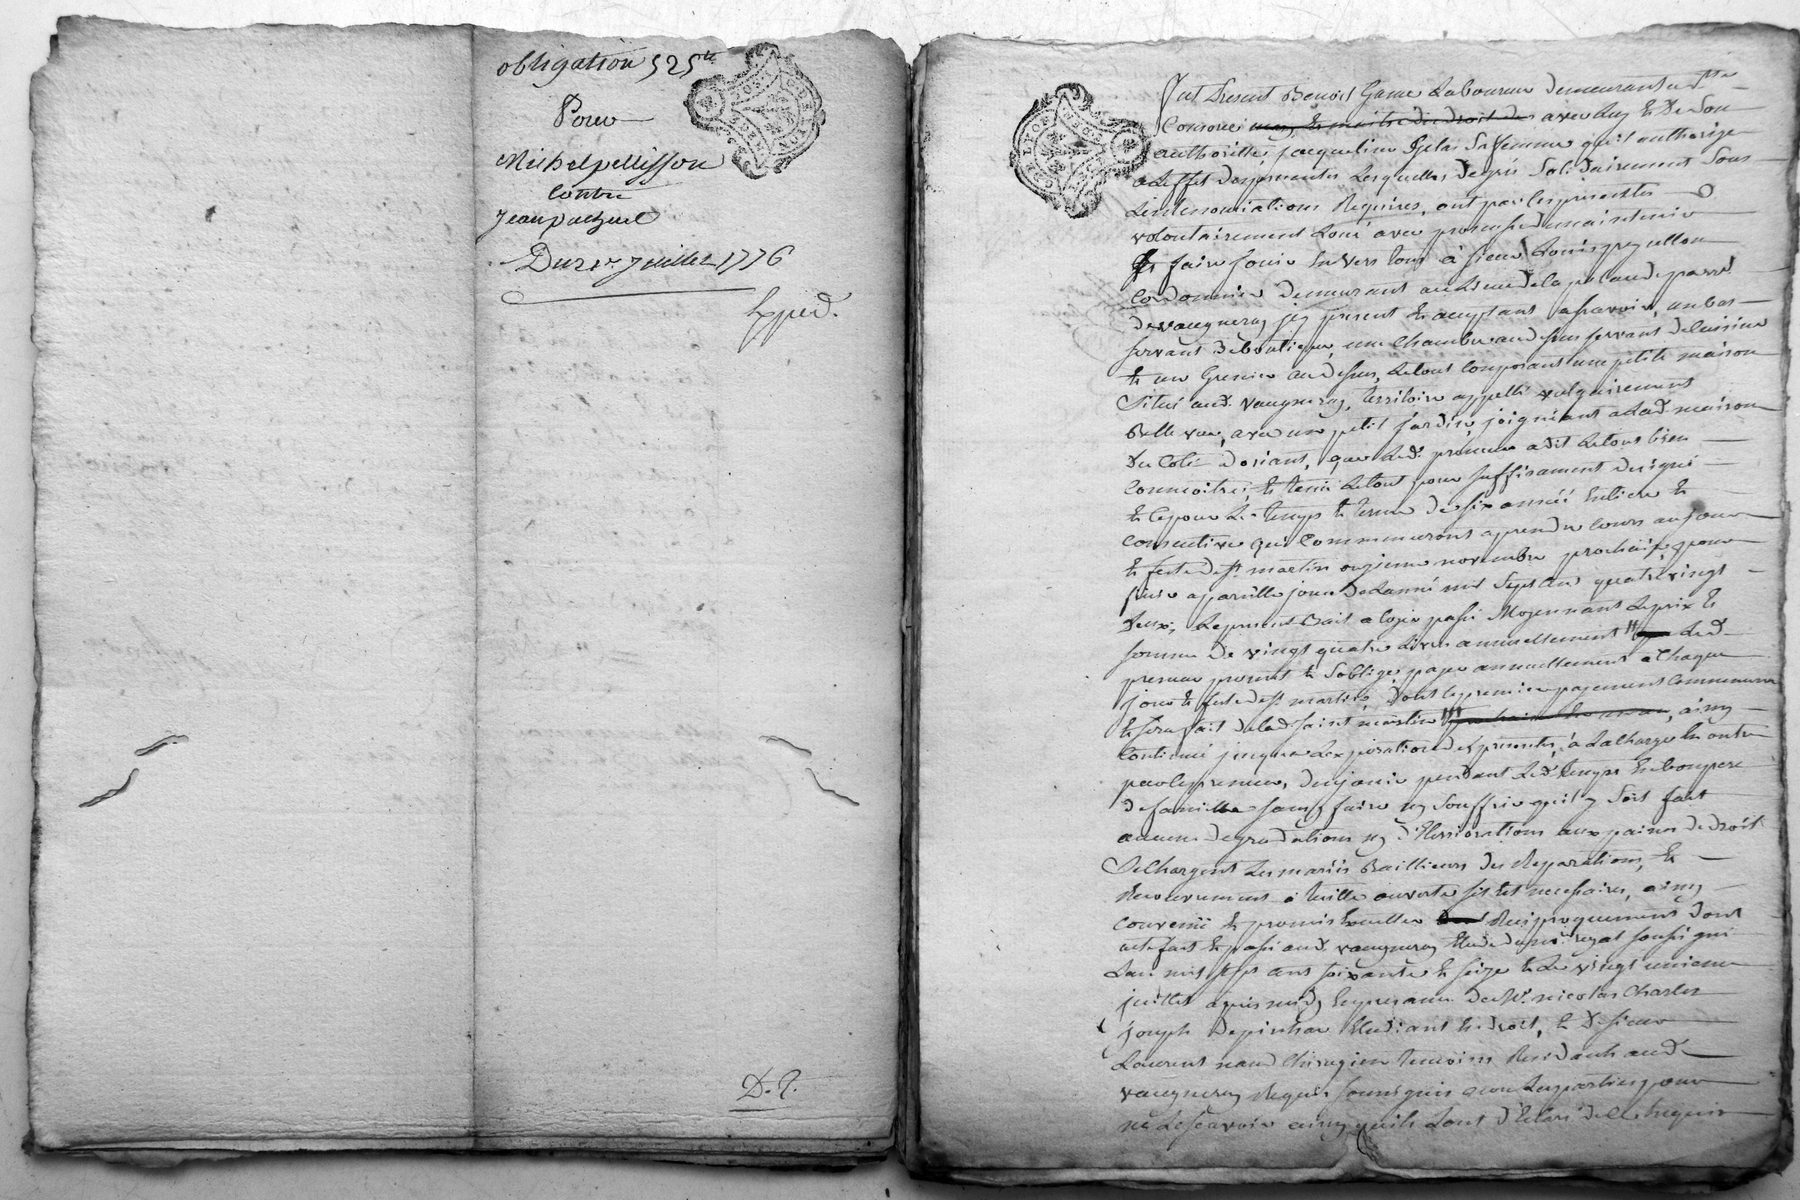 obligation 525 lt
Pour
Michel pellisson
contre
Jean pachuel
Du 21e. Juillet 1776
Expéd.
D. T.
GEN DE LYON
Fut Present Benoit Game Laboureur demeurant a Ste
Consorce avec luy et de son
authorittés jacqueline sa femme qu'il authorize
a Leffet des presentes Lesquelles de gré Solidairement Sous
Les renonciations Requises, ont par les presentes
volontairement Loué avec promesse de maintenir
et faire jouir Envers tous à sieur Louis
Cordonnier demeurant au Lieu de la parr.
de vaugneray jcy present et acceptant asçavoir, un bas
servant de boutique, une Chambre au dessus servant de Cuisine
et un Grenier au dessus, Le tout Composant une petite maison
Situé aud. vaugneray, territoire appellé vulgairement
Belle vue, avec un petit jardin, joignant a Lad. maison
du Coté d'oriant, que Led. preneur a dit Le tout bien
Connoitre, et tenir Le tout pour suffisament designé
et Ce pour Le temps et terme de six année Entiere et
Consecutive qui Commenceront a prendre Cours au jour
et feste de st. martin onzieme novembre prochain, pour
finir a pareille jour de Lanné mil Sept Cent quatrevingt
deux, Le present Bail a Loyer passé Moyennant Le prix et
somme de vingt quatre Livres annuellement Led.
preneur promet et Soblige payer annuellement a Chaque
jour et feste de st martin, dont Le premier payement Commencera
et sera fait de lad. saint martin ainsy
Continué jusqua Lexpiration des presentes, à La Charge En outre
par Le preneur, de jouir pendant Led. temps En bon pere
de famille sans faire ny Souffrir qu'il y Soit fait
aucune degradations ny déterriorations aux paines de droit
Se Chargent Les mariés Bailleurs des Reparations, et
Recouvrement a tuille ouverte sil Est necessaires, ainsy
Convenu et promis Reciproquement dont
acte fait et passé aud. vaugneray Etude du no.re royal soussigné
Lan mil sept cent soixante et seize et Le vingt unieme
juillet apres midy En presence de Mr. nicolas Charles
joseph Etudiant En droit, et de sieur
Laurent naud Chirurgien temoins Residants aud.
vaugneray Requis soussignés non Les parties pour
ne Le sçavoir ainsy quils Lont déclaré de ce Enquis